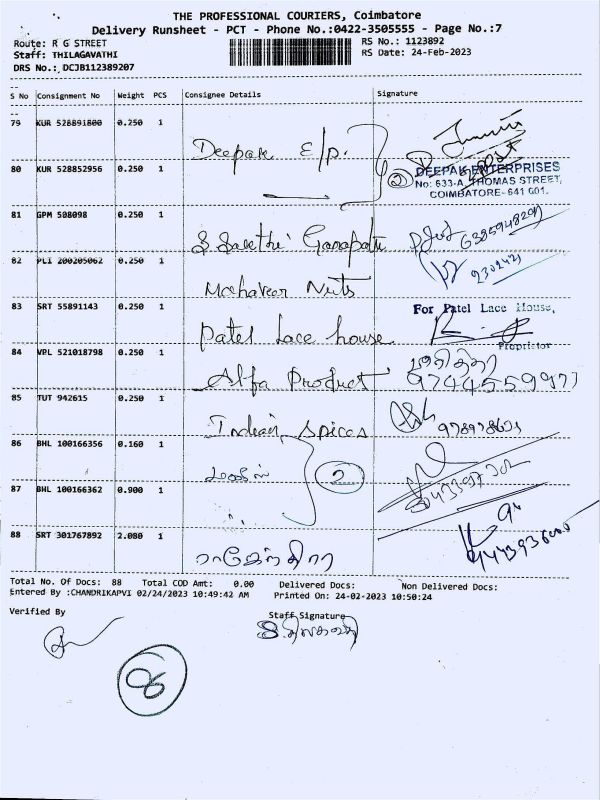 THE PROFESSIONAL COURIERS, Coimbatore
Delivery Runsheet - PCT - Phone No.:0422-3505555 - Page No.:7
Route: R G STREET
RS No.: 1123892
Staff: THILAGAVATHI
RS Date: 24-Feb-2023
DRS No.: DCJB112389207
S No Consignment No Weight PCS Consignee Details Signature
79 KUR 528891800 0.250 1
Deepak E/p.
80 KUR 528852956 0.250 1
2 DEEPAK ENTERPRISES
No: 633-A, THOMAS STREET,
COIMBATORE- 641 001.
81 GPM 508098 0.250 1
S Sakthi Ganapati
82 PLI 200205062 0.250 1
Mahaveer Nuts
83 SRT 55891143 0.250 1
For Patel Lace House,
Patel Lace house
Proprietor
84 VPL 521018798 0.250 1
Alfa Product
85 TUT 942615 0.250 1
Indian spices
86 BHL 100166356 0.160 1
2
87 BHL 100166362 0.900 1
88 SRT 301767892 2.080 1
ராஜேந்திரா
Total No. Of Docs: 88 Total COD Amt: 0.00 Delivered Docs: Non Delivered Docs:
Entered By :CHANDRIKAPVI 02/24/2023 10:49:42 AM Printed On: 24-02-2023 10:50:24
Verified By
Staff Signature